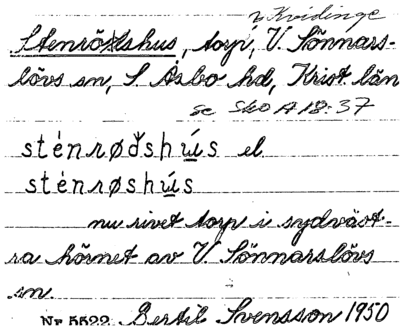 n Kvidinge
Stenrödshus, torp, V. Sönnars-
lövs sn, S. Åsbo hd, Krist. län
se Sko A 18:37
sténrøðshús el.
sténrøshús
nu rivet torp i sydväst-
ra hörnet av V. Sönnarslövs
sn.
Nr 5522 Bertil Svensson 1950